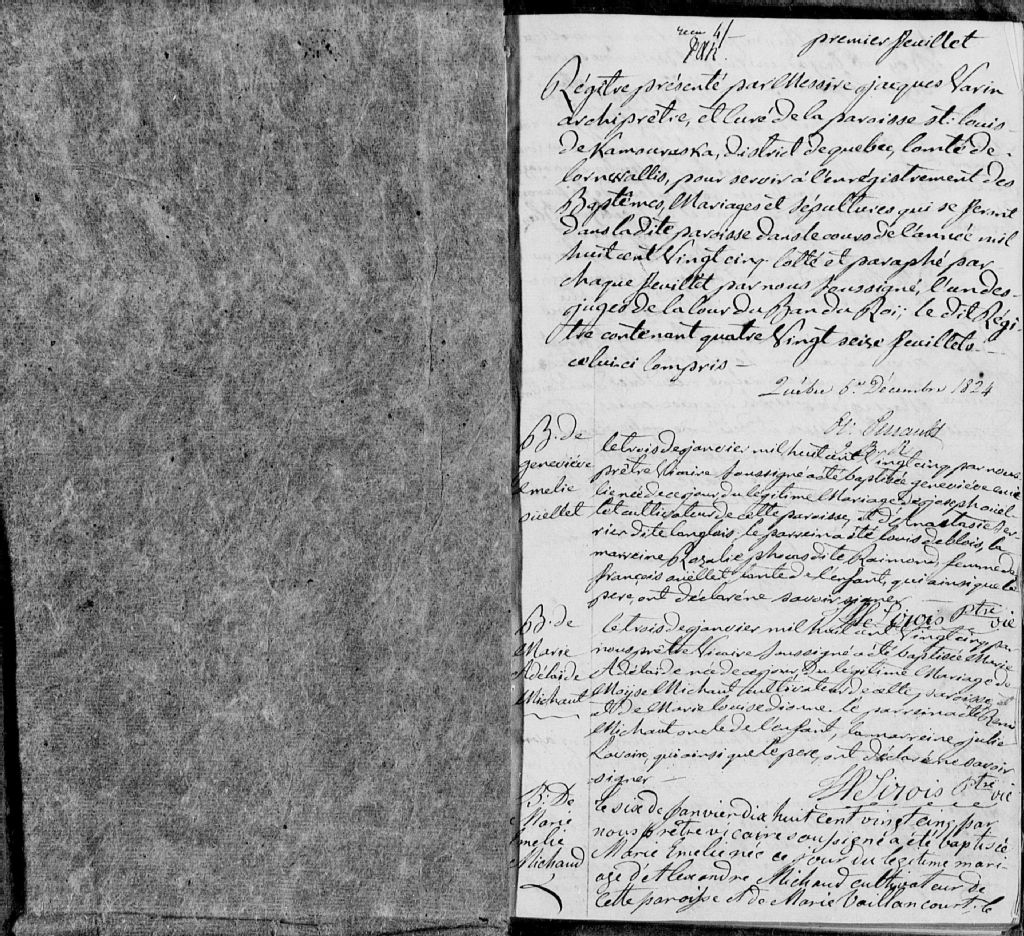 premier feuillet
Régitre présenté par Messire jacques Varin
archiprêtre, et Curé de la paroisse st. louis
de Kamouraska, district de quebec, Comté de
Cornwallis, pour servir à l'enregistrement des
Baptêmes, Mariages et Sépultures qui se feront
dans la dite paroisse dans le cours de l'année mil
huit cent Vingt cinq Cotté et paraphé par
chaque feuillet par nous Soussigné, l'un des
juges de la Cour du Banc du Roi; le dit Régi
tre contenant quatre Vingt seize feuillets
celui ci Compris
Québec 6 Décembre 1824
B. de
geneviève
Emelie
ouellet
le trois de janvier mil huit cent Vingt cinq par nous
prêtre Vicaire Soussigné a été baptisée geneviève eme
lie née de ce jour du légitime Mariage de joseph ouel
let cultivateur de cette paroisse, et d'Anastasie Ter-
rier dite langlois. le parrein a été louis deblois, la
marreine Rosalie phocas dite Raimond, femme de
françois ouellet, tante de l'enfant, qui ainsi que le
pere, ont déclaré ne savoir signer
Sirois Ptre vic
B. de
Marie
Adélaide
Michaut
le trois de janvier mil huit cent Vingt cinq par
nous prêtre Vicaire Soussigné a été baptisée Marie
Adélaide née de ce jour du légitime Mariage de
Moyse Michaut Cultivateur de cette paroisse,
et de Marie louise dionne. le parrein a été Remi
Michaut oncle de l'enfant, la marreine julie
Lavoie, qui ainsi que le pere, ont déclaré ne savoir
signer
Sirois Ptre vic
B. De
Marie
Emelie
Michaud
le six de Janvier dix huit cent vingt cinq par
nous prêtre vicaire soussigné a été baptisée
Marie Emelie née ce jour du légitime mari-
age d'Alexandre Michaud cultivateur de
cette paroisse et de Marie Vaillancourt. le